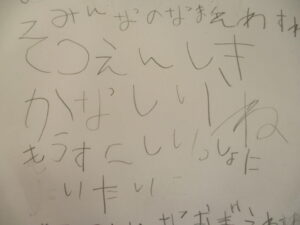 みんなのなまえわす
そつえんしき
かなしいね
もうすこしいっしょに
いたい